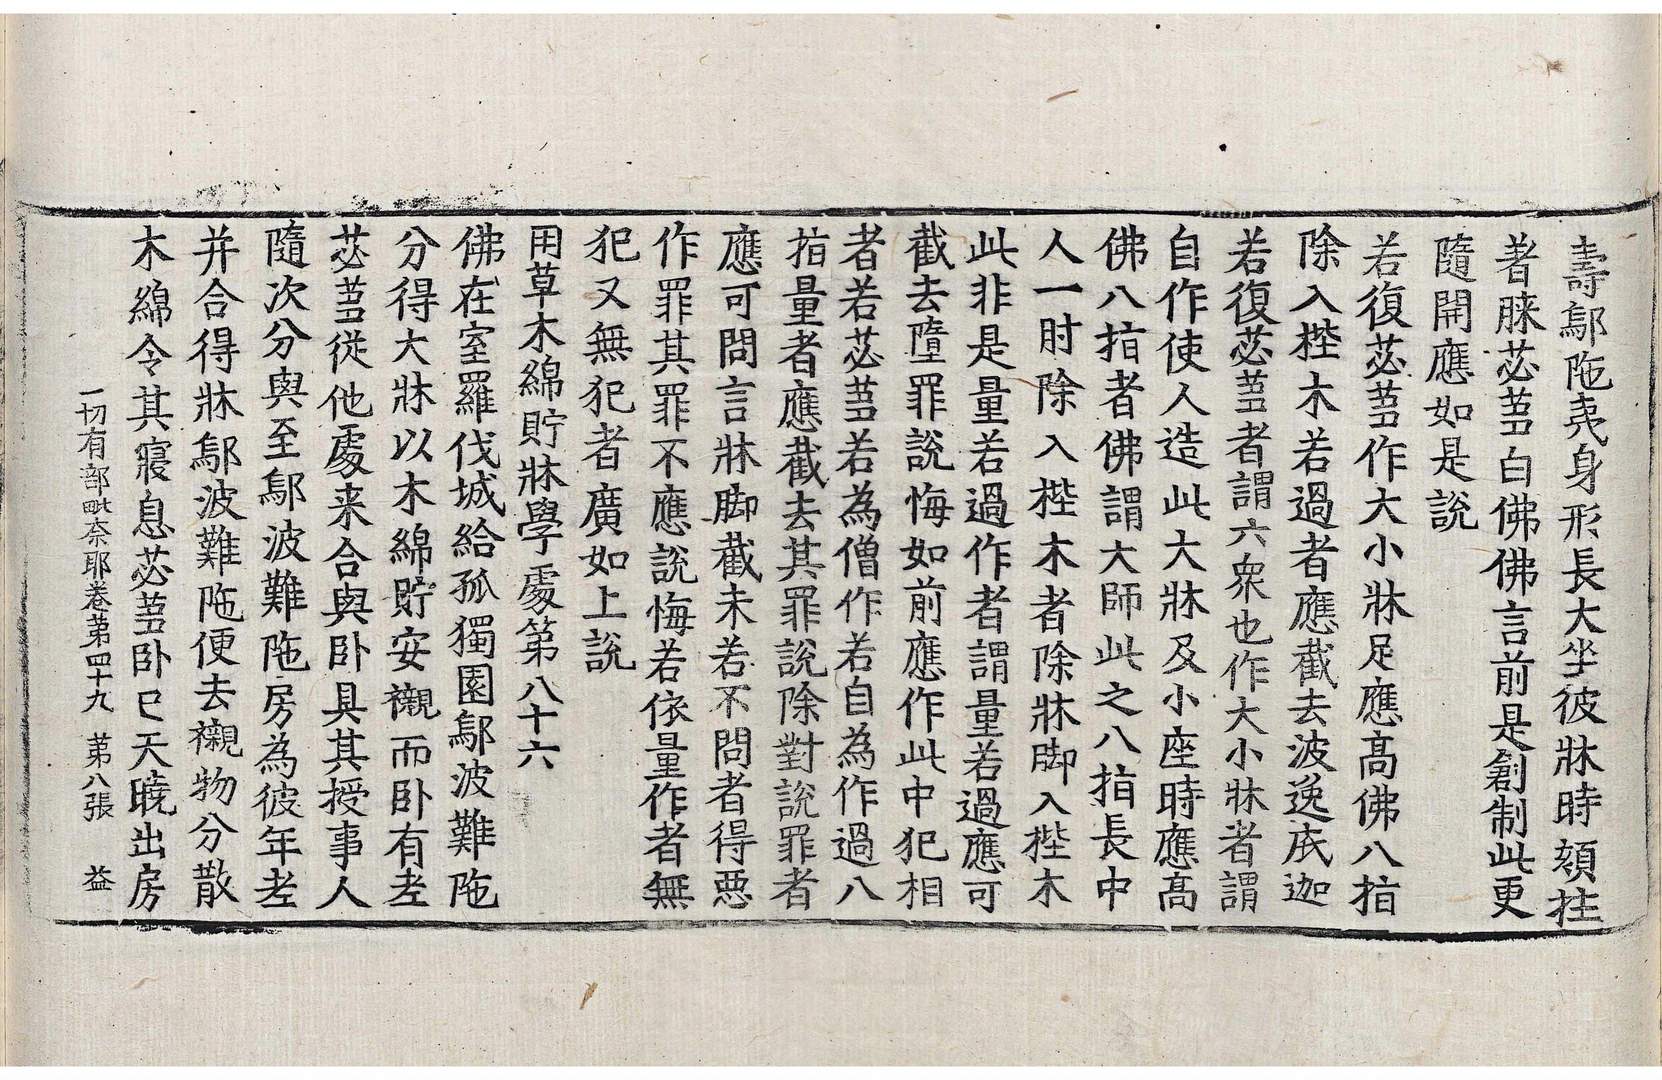 壽鄔陁夷身形長大坐彼牀時頦拄
著膝苾蒭白佛佛言前是創制此更
隨開應如是說
若復苾蒭作大小牀足應高佛八指
除入梐木若過者應截去波逸底迦
若復苾蒭者謂六衆也作大小牀者謂
自作使人造此大牀及小座時應高
佛八指者佛謂大師此之八指長中
人一肘除入梐木者除牀脚入梐木
此非是量若過作者謂量若過應可
截去墮罪說悔如前應作此中犯相
者若苾蒭若為僧作若自為作過八
指量者應截去其罪說除對說罪者
應可問言牀脚截未若不問者得惡
作罪其罪不應說悔若依量作者無
犯又無犯者廣如上說
用草木綿貯牀學處第八十六
佛在室羅伐城給孤獨園鄔波難陁
分得大牀以木綿貯安襯而卧有老
苾蒭從他處来合與卧具其授事人
隨次分與至鄔波難陁房為彼年老
并合得牀鄔波難陁便去襯物分散
木綿令其寢息苾蒭卧已天曉出房
一切有部毗奈耶卷第四十九　第八張　益